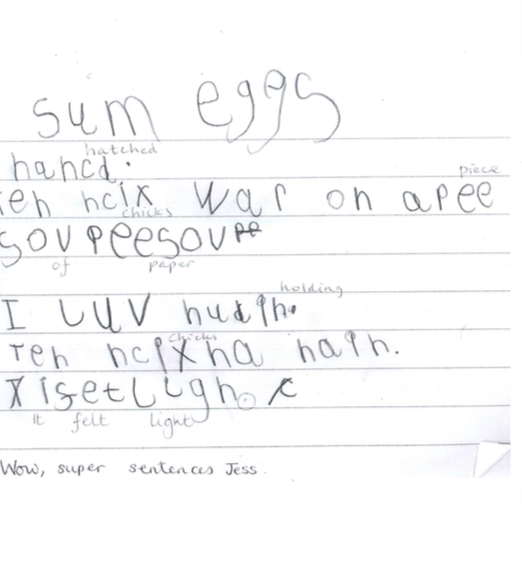 sum eggs
hatched
hancd.
piece
ten hcix war on apee
chicks
sov peesovpe
of paper
holding
I LUV hudlh.
chicks
Ten hcix ha hath.
It felt light
Wow, super sentences Jess.